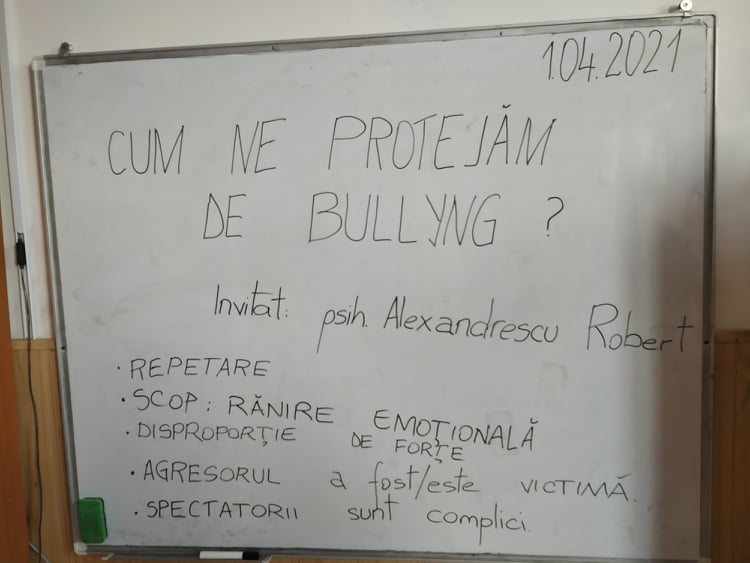 1.04.2021
CUM NE PROTEJĂM
DE BULLYNG ?
Invitat: psih. Alexandrescu Robert
• REPETARE
• SCOP: RĂNIRE EMOȚIONALĂ
• DISPROPORȚIE DE FORȚE
• AGRESORUL a fost/este VICTIMĂ.
• SPECTATORII sunt complici.